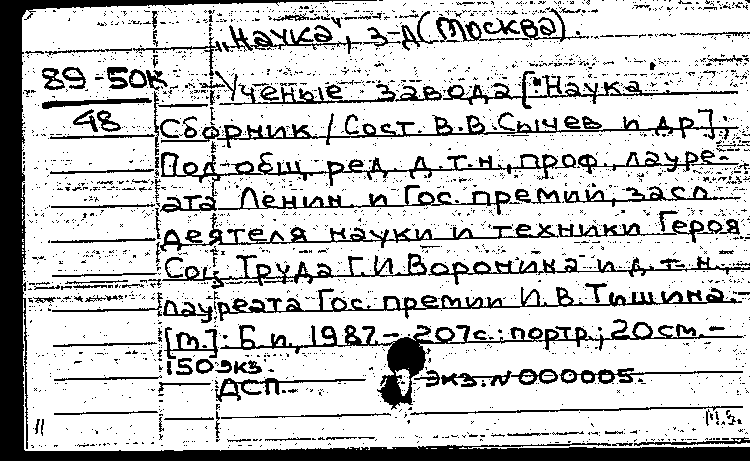 „Наука", з-д (Москва).
89-50к
48
Ученые завода ["Наука":
Сборник / Сост. В.В.Сычев и др];
Под общ. ред. д.т.н., проф., лауре-
ата Ленин. и Гос. премий, засл.
деятеля науки и техники Героя
Соц. Труда Г.И.Воронина и д.т.н.,
лауреата Гос. премии И.В.Тишина.-
[М.]: Б.и., 1987.- 207с.: портр.; 20см.-
150экз.
ДСП.- Экз.N 000005.